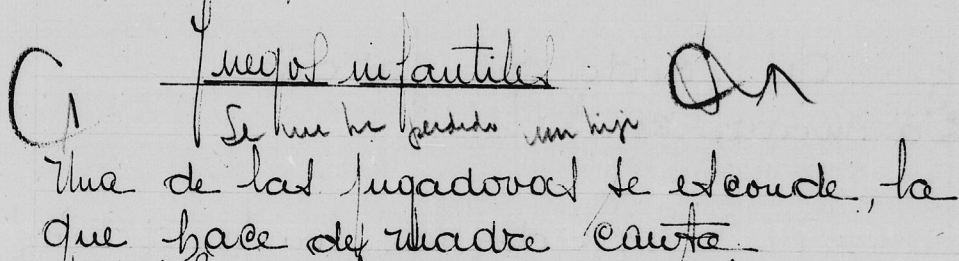 Juegos infantiles
Se me ha perdido un hijo
Una de las jugadoras se esconde, la
que hace de madre canta.